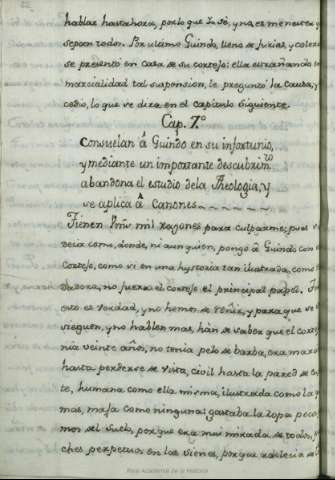 hablar hasta hora, porlo que yo sé, y no, es menester q.
sepan todos. Por ultimo Guindo, lleno de furias, y colera
se presentó en Casa de su cortejo: ella estrañando in
marcialidad tal suspension, le preguntó la Causa, y
, lo que se dira en el capitulo siguiente.
Cap. 7.º
Consuelan â Guindo en su infortunio,
y mediante un importante descubrim.to
abandona el estudio dela Theologia, y
se aplica â Canones
Tienen Vms mil razones para culparme, pues
decia como, donde, ni aun quien, pongo â Guindo con
Cortejo, como si en una hystoria tan ilustrada, como
dadora, no fuera el cortejo el principal papel.
esto es verdad, y no hemos de reñir, y para que se
sieguen, y no hablen mas, han de saber que el corte
nia veinte años, no tenia pelo de barba, era
hasta perderse de vista, civil hasta la pared de
te, humana como ella misma, ilustrada como la
mas, maja como ninguna: gastaba la ropa poco
mos del suelo, porque era mui mirada de todos,
ches perpetuos en las sienes, porque adolecia de
Real Academia de la Historia